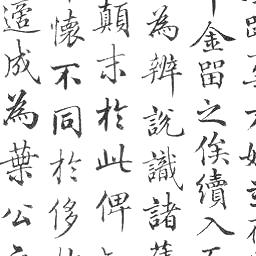 金留之俟續入
為辨說識諸
顛末於此俾
懷不同於侈
適成為葉公